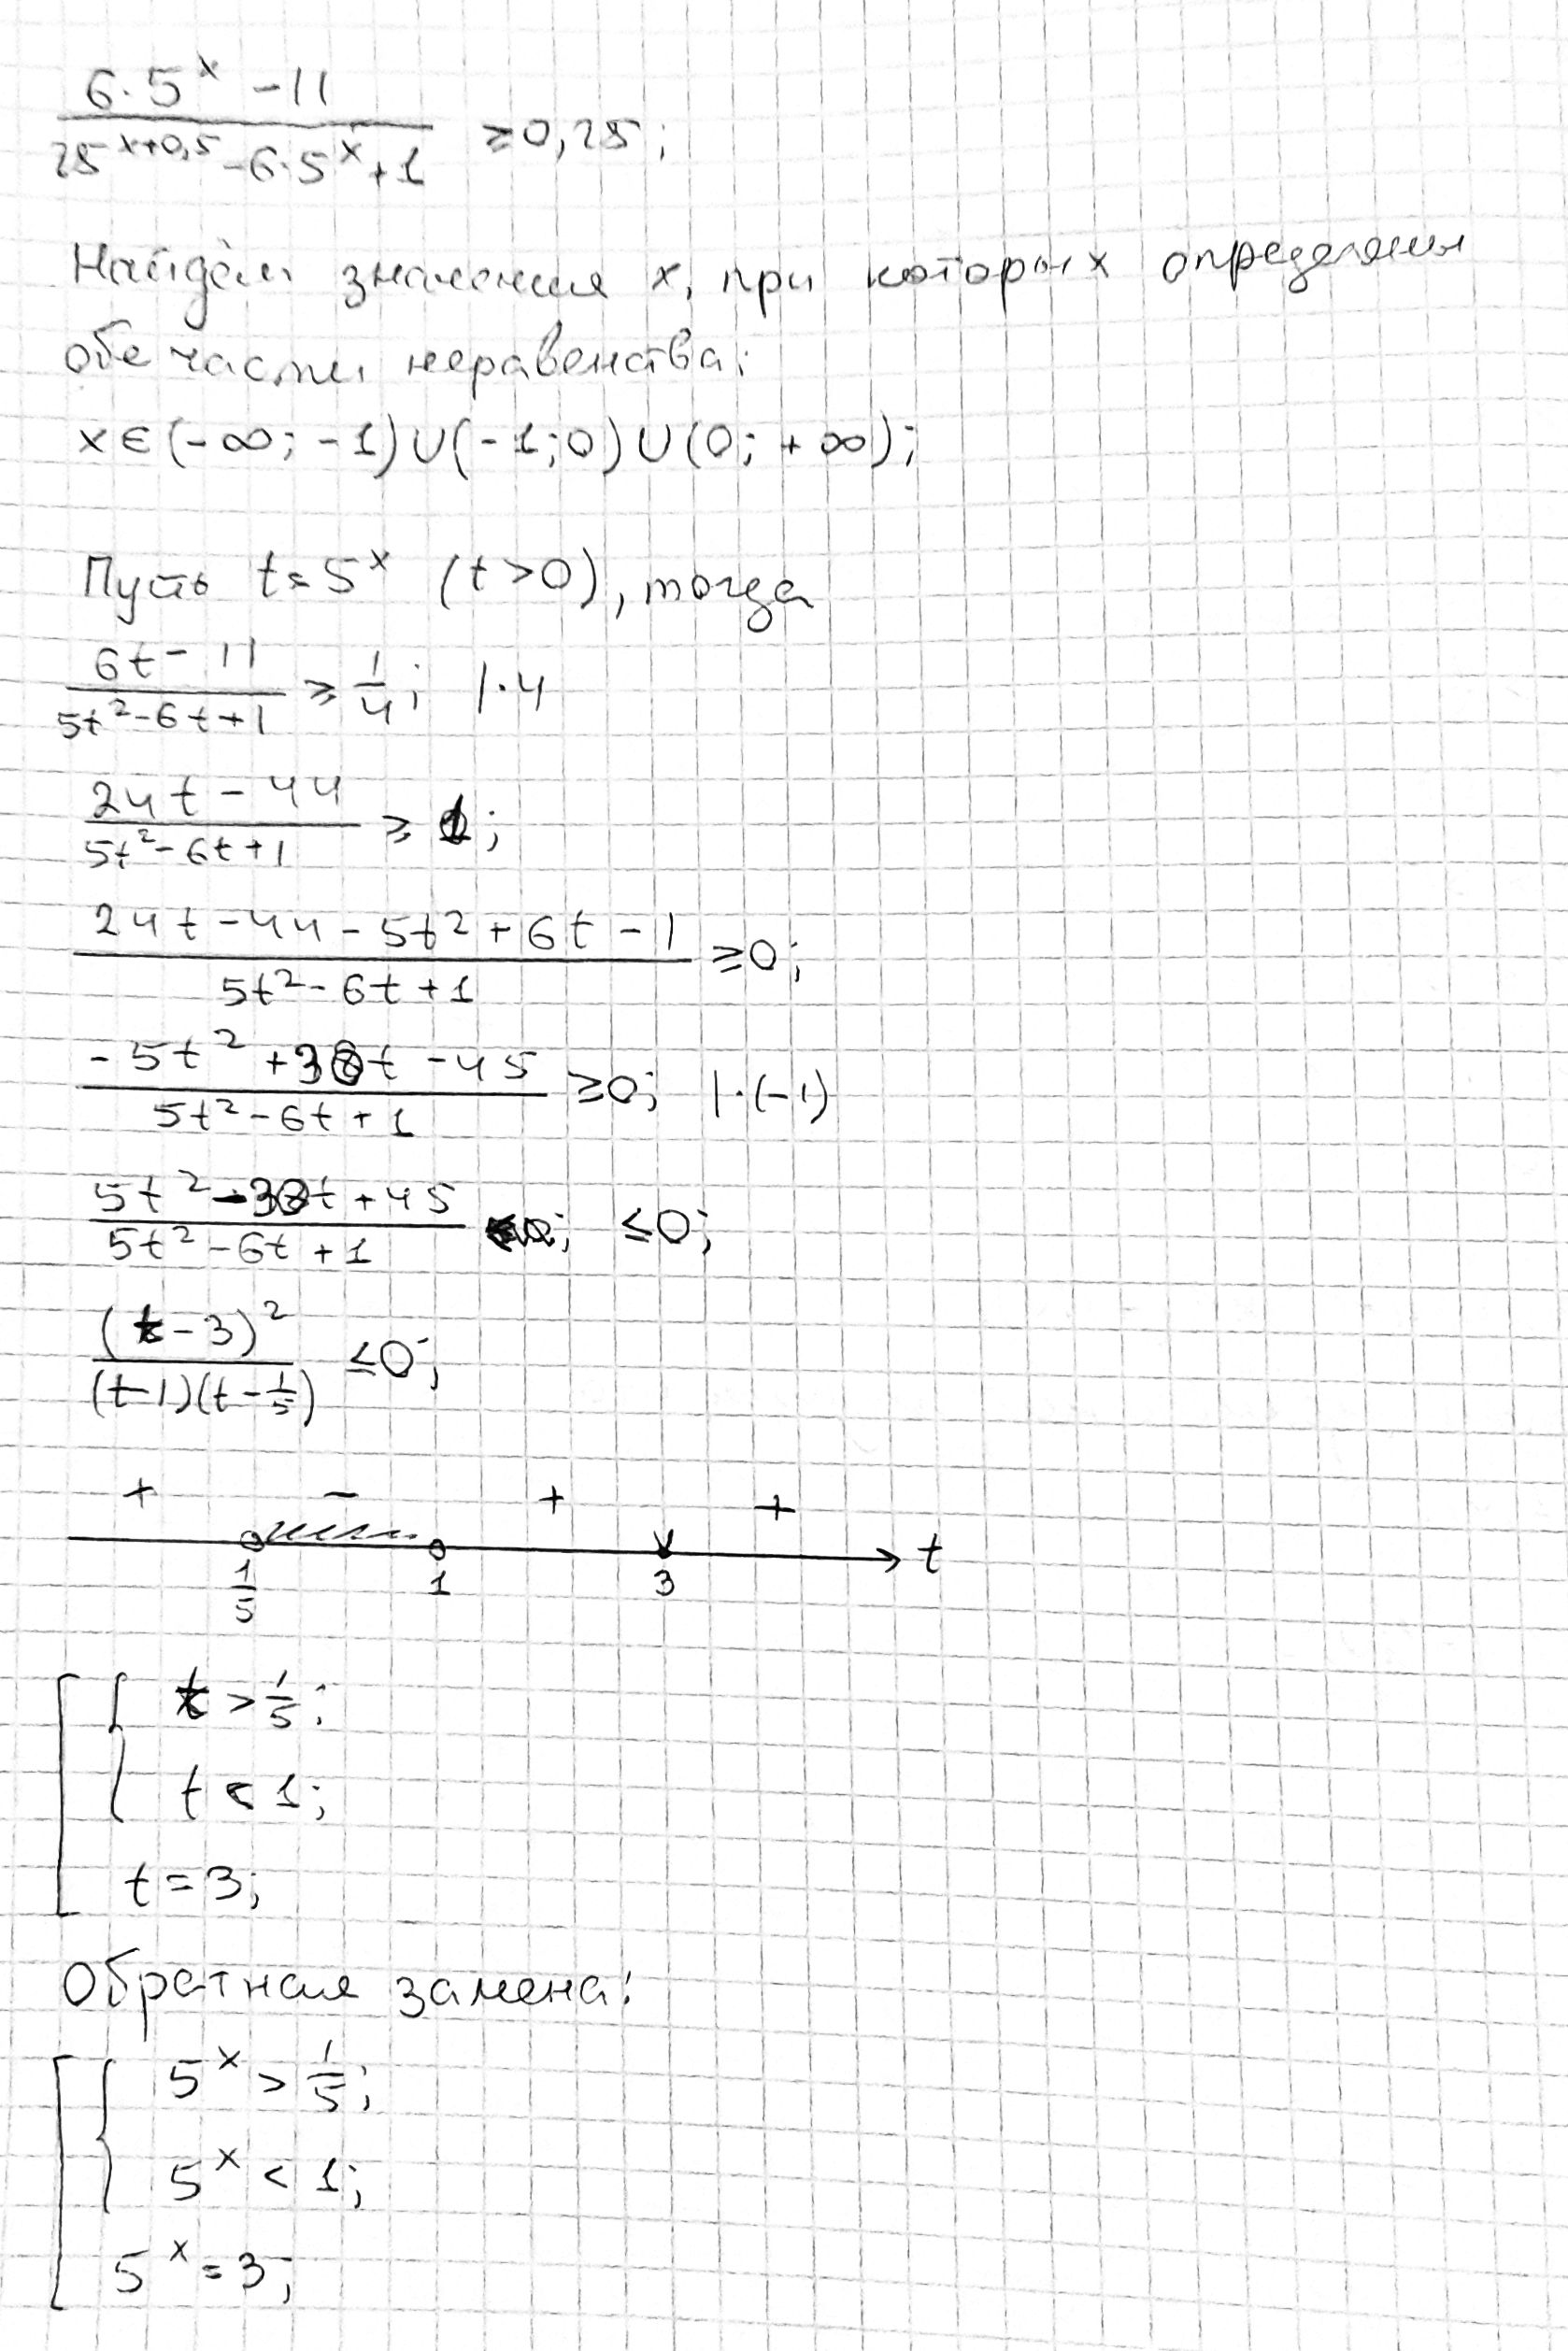 (6·5^x - 11)/(25^(x+0,5) - 6·5^x + 1) ≥ 0,25;
Найдём значения x, при которых определены
обе части неравенства:
x ∈ (-∞; -1) ∪ (-1; 0) ∪ (0; +∞);
Пусть t = 5^x (t > 0), тогда
(6t - 11)/(5t² - 6t + 1) ≥ 1/4; |·4
(24t - 44)/(5t² - 6t + 1) ≥ 1;
(24t - 44 - 5t² + 6t - 1)/(5t² - 6t + 1) ≥ 0;
(-5t² + 30t - 45)/(5t² - 6t + 1) ≥ 0; |·(-1)
(5t² - 30t + 45)/(5t² - 6t + 1) ≤ 0;
(t - 3)²/((t - 1)(t - 1/5)) ≤ 0;
+ - + +
1/5 1 3 t
t > 1/5;
t < 1;
t = 3;
Обратная замена:
5^x > 1/5;
5^x < 1;
5^x = 3;